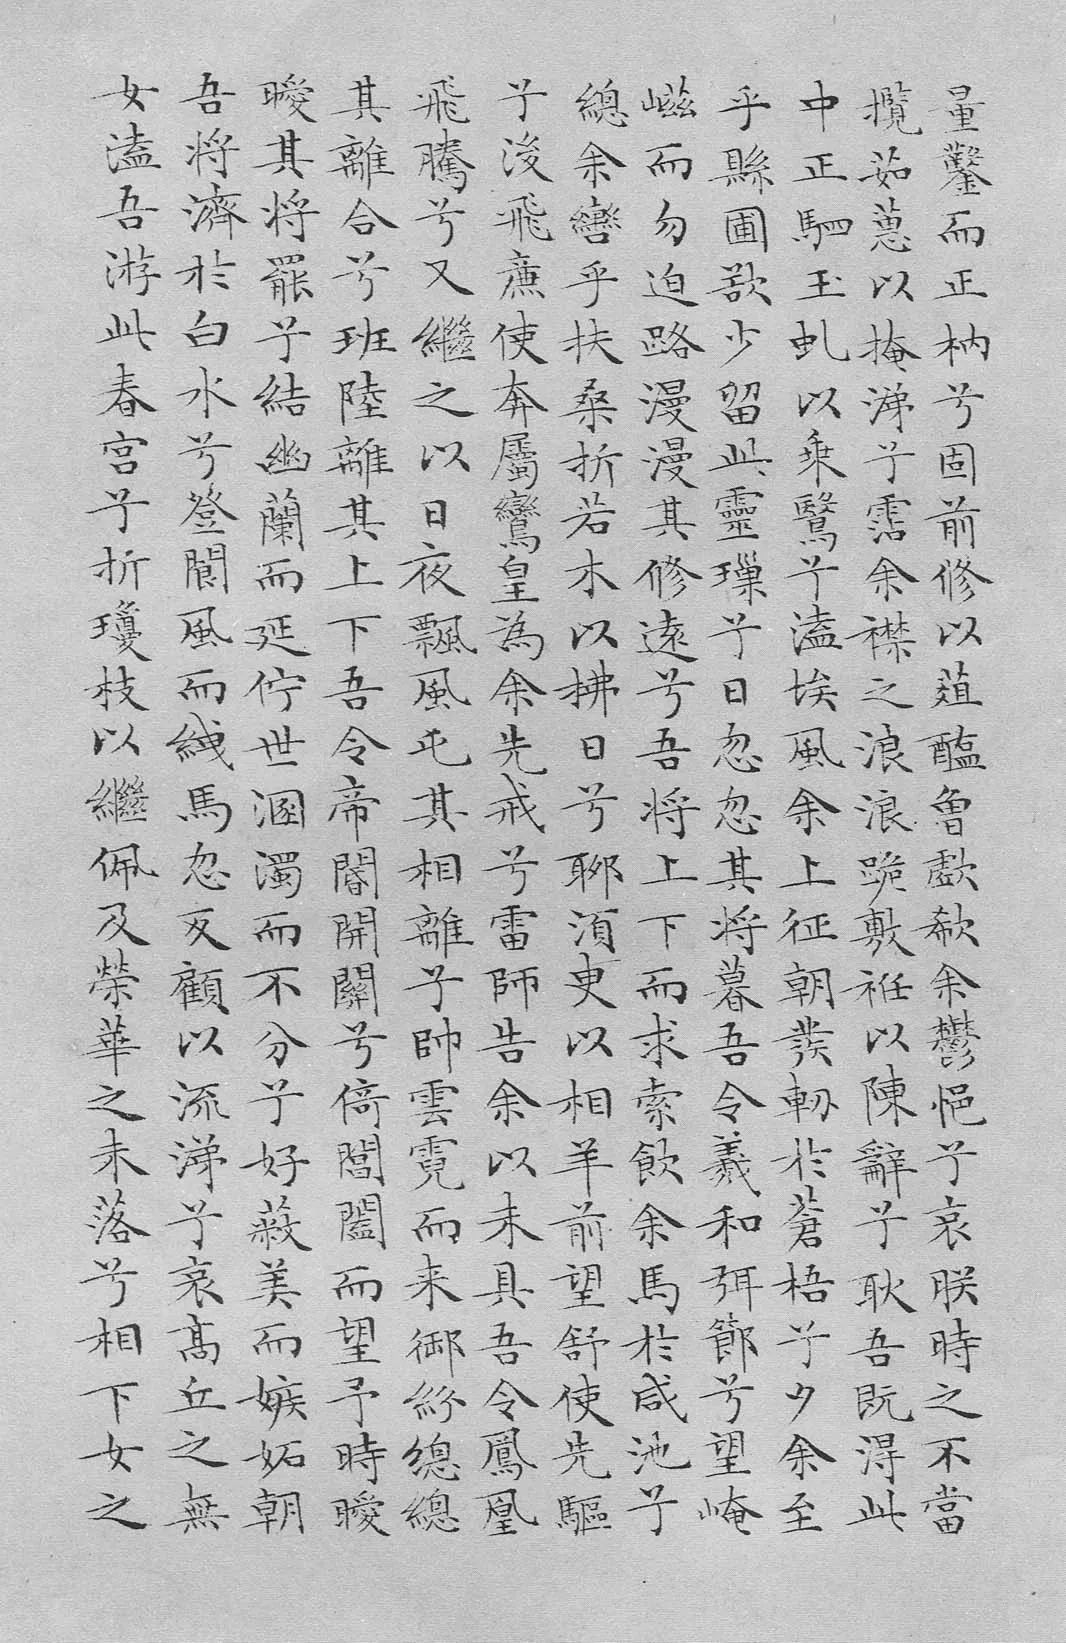 量鑿而正枘兮固前修以菹醢曾歔欷余鬱悒兮哀朕時之不當
攬茹蕙以掩涕兮霑余襟之浪浪跪敷衽以陳辭兮耿吾既得此
中正駟玉虬以乗鷖兮溘埃風余上征朝發軔於蒼梧兮夕余至
乎縣圃欲少留此靈璅兮日忽忽其將暮吾令羲和弭節兮望崦
嵫而勿迫路漫漫其修遠兮吾將上下而求索飲余馬於咸池兮
總余轡乎扶桑折若木以拂日兮聊須臾以相羊前望舒使先驅
兮後飛廉使奔屬鸞皇為余先戒兮雷師告余以未具吾令鳳凰
飛騰兮又繼之以日夜飄風屯其相離兮帥雲霓而来御紛總總
其離合兮班陸離其上下吾令帝閽開關兮倚閶闔而望予時曖
曖其將罷兮結幽蘭而延佇世溷濁而不分兮好蔽美而嫉妬朝
吾將濟於白水兮登閬風而緤馬忽反顧以流涕兮哀高丘之無
女溘吾游此春宮兮折瓊枝以繼佩及榮華之未落兮相下女之